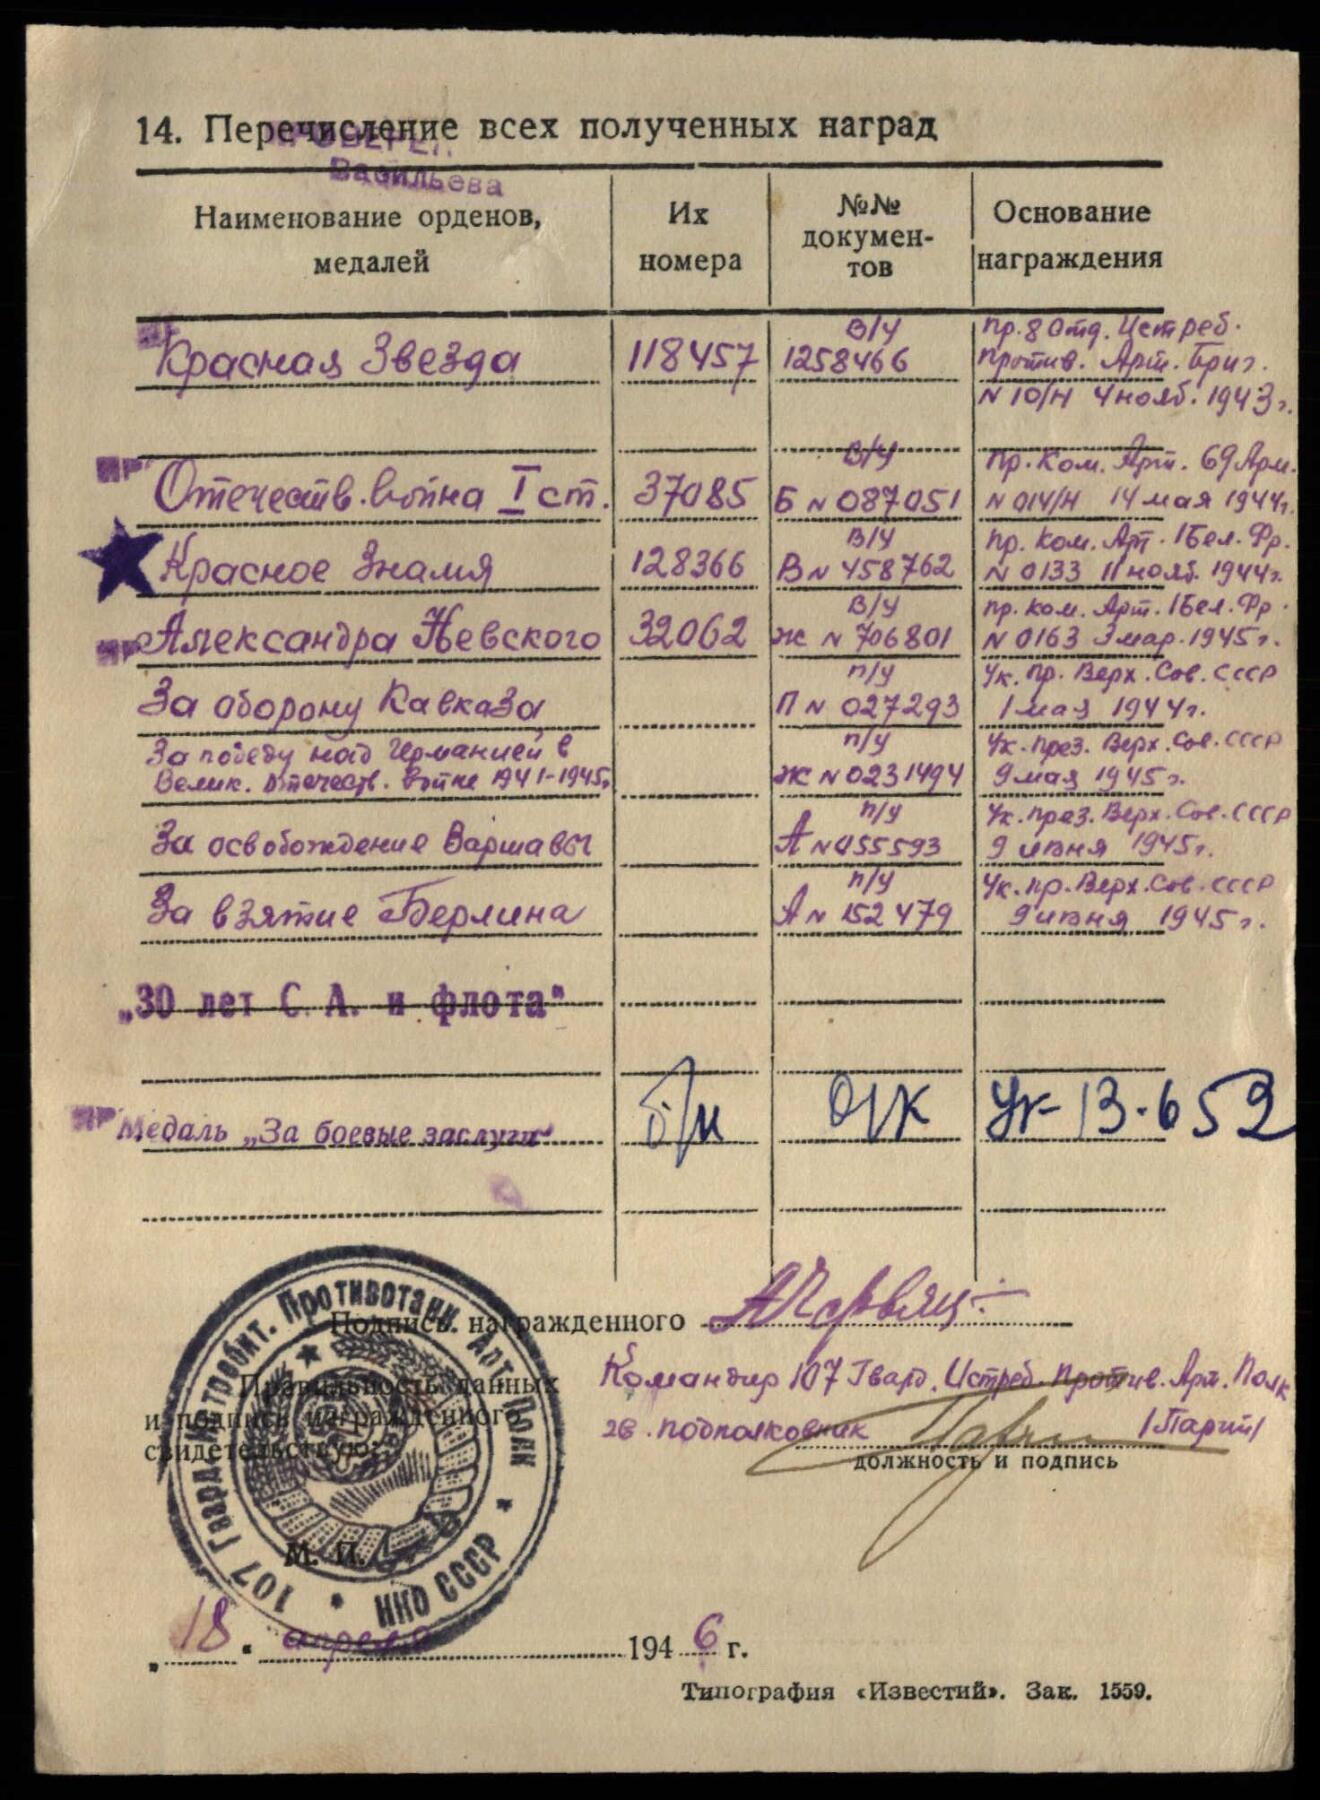 14. Перечисление всех полученных наград
Васильева
Наименование орденов, медалей
Их номера
№№ документов
Основание награждения
Красная Звезда 118457 В/У 1258466 Пр. 8 Отд. Истреб. Против. Арт. Бриг. N 10/Н 4 нояб. 1943 г.
Отечеств. война I ст. 37085 В/У Б N 087051 Пр. Ком. Арт. 69 Арм. N 014/Н 14 мая 1944 г.
Красное Знамя 128366 В/У В N 458762 Пр. Ком. Арт. 1 Бел. Фр. N 0133 11 нояб. 1944 г.
Александра Невского 32062 В/У Ж N 706801 Пр. Ком. Арт. 1 Бел. Фр. N 0163 3 мар. 1945 г.
За оборону Кавказа П/У П N 027293 Ук. Пр. Верх. Сов. СССР 1 мая 1944 г.
За победу над Германией в Велик. Отечеств. войне 1941-1945 г. П/У Ж N 0231494 Ук. През. Верх. Сов. СССР 9 мая 1945 г.
За освобождение Варшавы П/У А N 055593 Ук. През. Верх. Сов. СССР 9 июня 1945 г.
За взятие Берлина П/У А N 152479 Ук. Пр. Верх. Сов. СССР 9 июня 1945 г.
„30 лет С. А. и флота"
Медаль „За боевые заслуги" б/н О/К Ук-13-652
Подпись награжденного
Командир 107 Гвард. Истреб. Против. Арт. Полк
гв. подполковник
должность и подпись
Правильность данных
и подписи награжденного
свидетельствую:
М. П.
107 Гвард. Истребит. Противотанк. Арт. Полк
НКО СССР
„18" апреля 1946 г.
Типография «Известий». Зак. 1559.